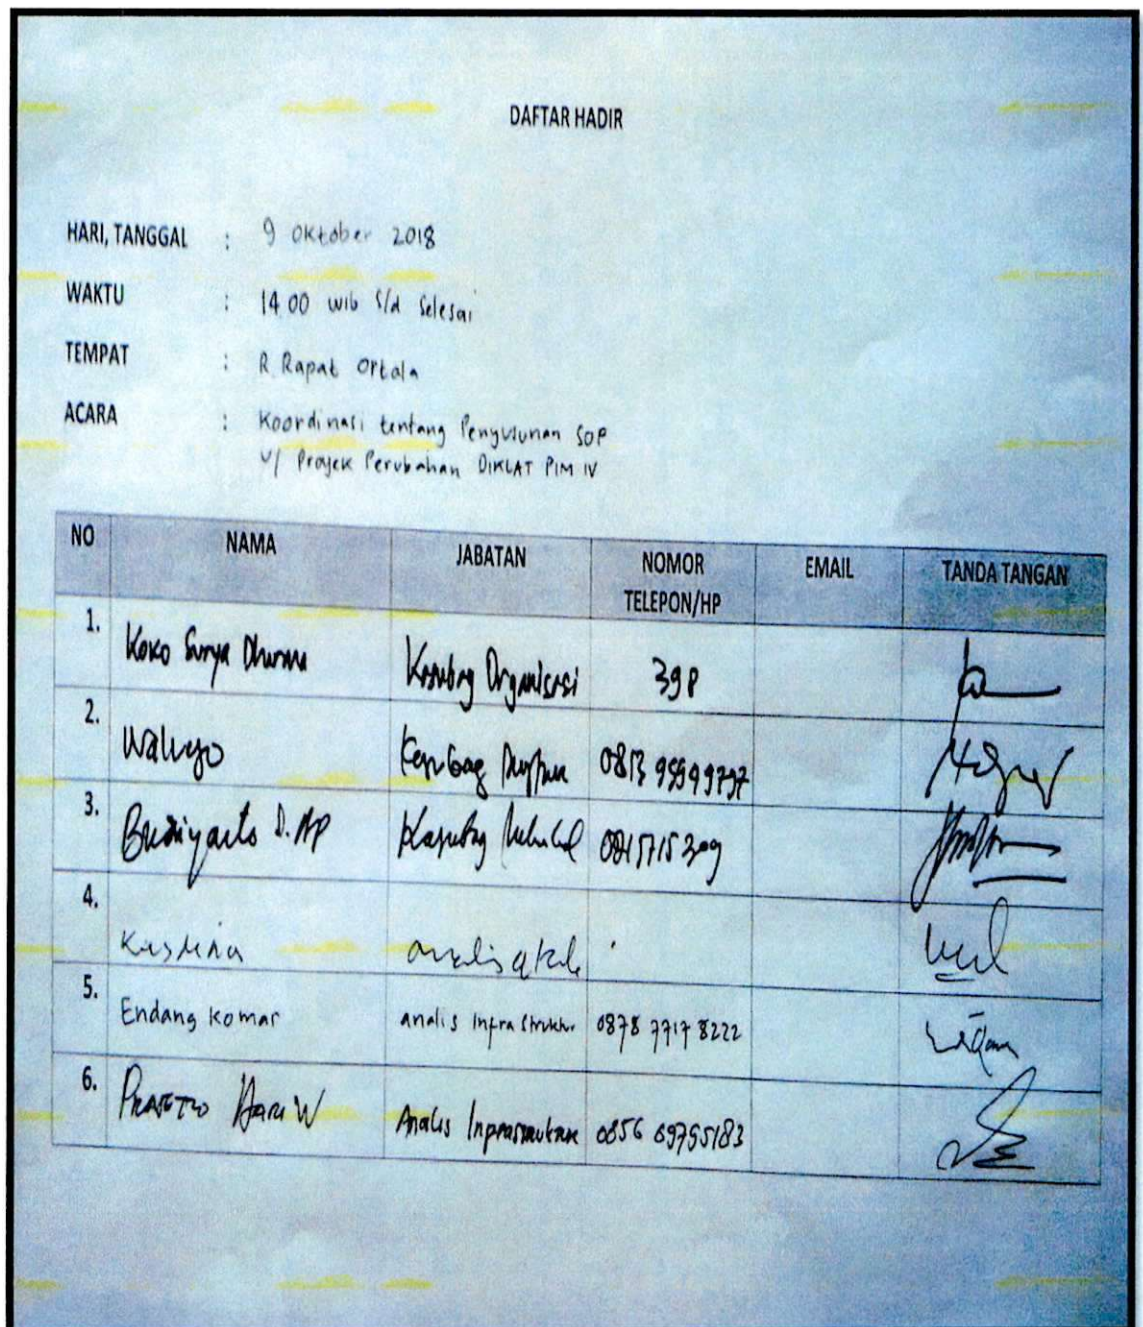 DAFTAR HADIR
HARI, TANGGAL : 9 Oktober 2018
WAKTU : 14.00 wib s/d selesai
TEMPAT : R. Rapat Ortala
ACARA : Koordinasi tentang Penyusunan SOP
u/ Projek Perubahan DIKLAT PIM IV
NO NAMA JABATAN NOMOR TELEPON/HP EMAIL TANDA TANGAN
1. Koko Surya Kasubag Organisasi 398
2. Waluyo Kasubag
3. D. AP Kasubag
4. Kusmina analis
5. Endang Komar analis Infrastruktur 0878 7717 8222
6. PRASETYO HARI W Analis 0856 69795183